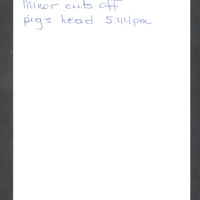 Minor cuts off
pig's head 5:44pm